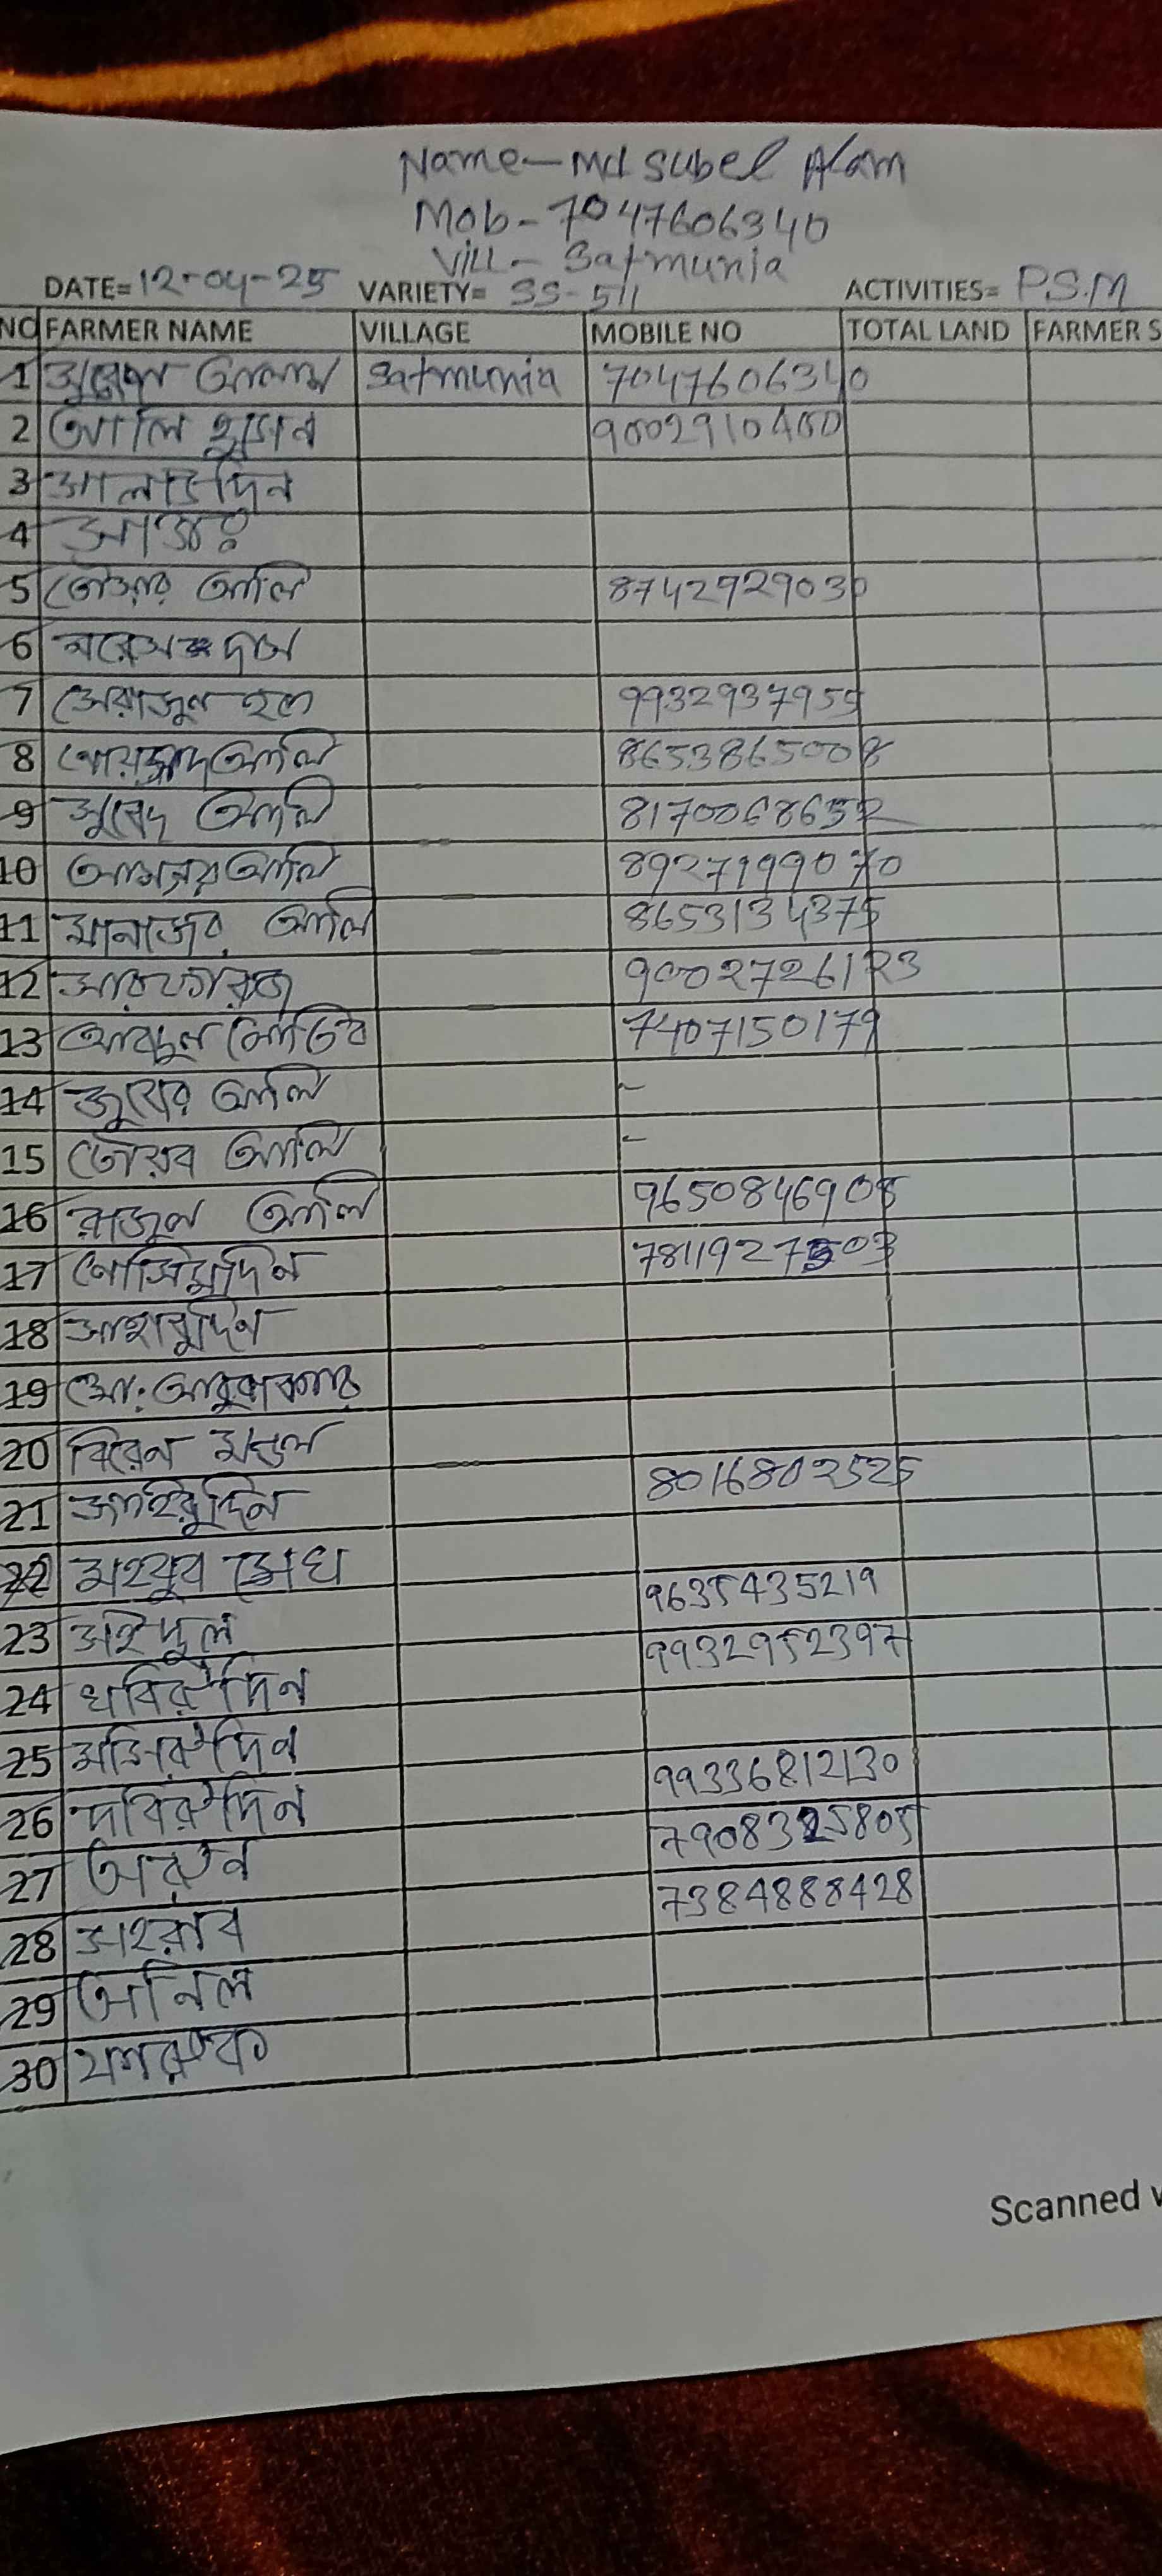 Name-Md Subel Alam
Mob-7047606340
Vill-Satmunia
DATE=12-04-25 VARIETY= SS-511 ACTIVITIES= P.S.M
NO FARMER NAME VILLAGE MOBILE NO TOTAL LAND FARMER S
1 সুবেল আলাম Satmunia 7047606340
2 আলি হুসেন 9002910400
3 আলাউদিন
4
5 আলি 8742929030
6 দাস
7 সেরাজুল হক 9932937959
8 আলি 8653865008
9 সুবেদ আলি 8170068652
10 আলি 8927199070
11 মানাজের আলি 8653134375
12 9002726123
13 আবদুল 7407150179
14 জুবের আলি -
15 তৈয়ব আলি -
16 রাজুল আলি 9650846908
17 নোসিমুদিন 7811927503
18
19 মো: আবুবাক্কার
20 বিরেন মন্ডল
21 জাহিরুদ্দিন 8016802525
22 মহবুব সেখ
23 সহিদুল 9635435219
24 খবিরুদিন 9932952397
25 মজিরুদিন
26 দবিরুদিন 99336812130
27 অরুন 7908325805
28 সহরাব 7384888428
29 অনিল
30 ফারুক
Scanned w